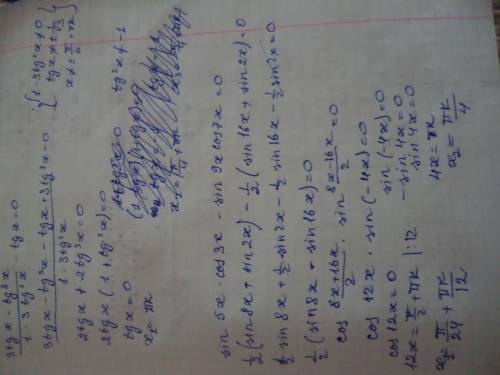 3tgx - tg³x / 1 - 3tg²x - tgx = 0
3tgx - tg³x - tgx + 3tg³x = 0 / 1 - 3tg²x
{ 1 - 3tg²x ≠ 0
tgx ≠ ± 1/√3
x ≠ ± π/6 + πk }
2tgx + 2tg³x = 0
2tgx (1 + tg²x) = 0
tgx = 0 tg²x ≠ -1
x₁ = πk
sin 5x · cos 3x - sin 9x cos 7x = 0
1/2 (sin 8x + sin 2x) - 1/2 (sin 16x + sin 2x) = 0
1/2 sin 8x + 1/2 sin 2x - 1/2 sin 16x - 1/2 sin 2x = 0
1/2 (sin 8x - sin 16x) = 0
cos 8x+16x/2 · sin 8x-16x/2 = 0
cos 12x · sin (-4x) = 0
cos 12x = 0 sin (-4x) = 0
12x = π/2 + πk |:12 - sin 4x = 0
sin 4x = 0
x₁ = π/24 + πk/12 4x = πk
x₂ = πk/4